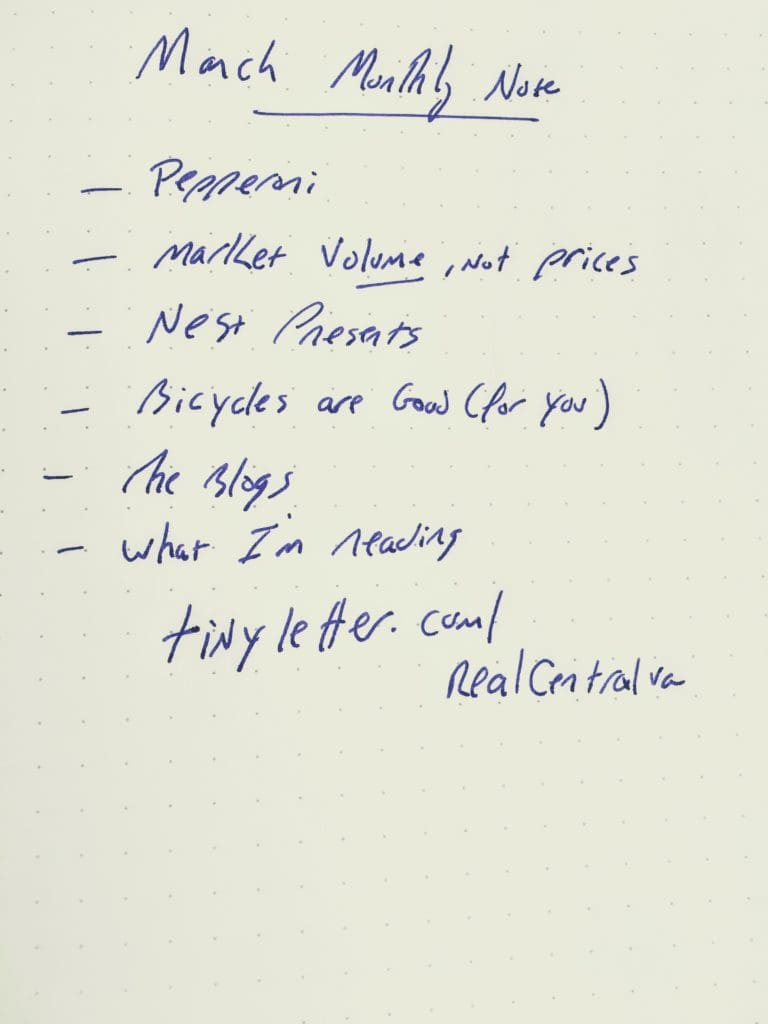 March Monthly Note
— Pepperoni
— Market Volume, Not prices
— Nest Presents
— Bicycles are Good (for you)
— The Blogs
— What I'm reading
tinyletter.com/
RealCentralva